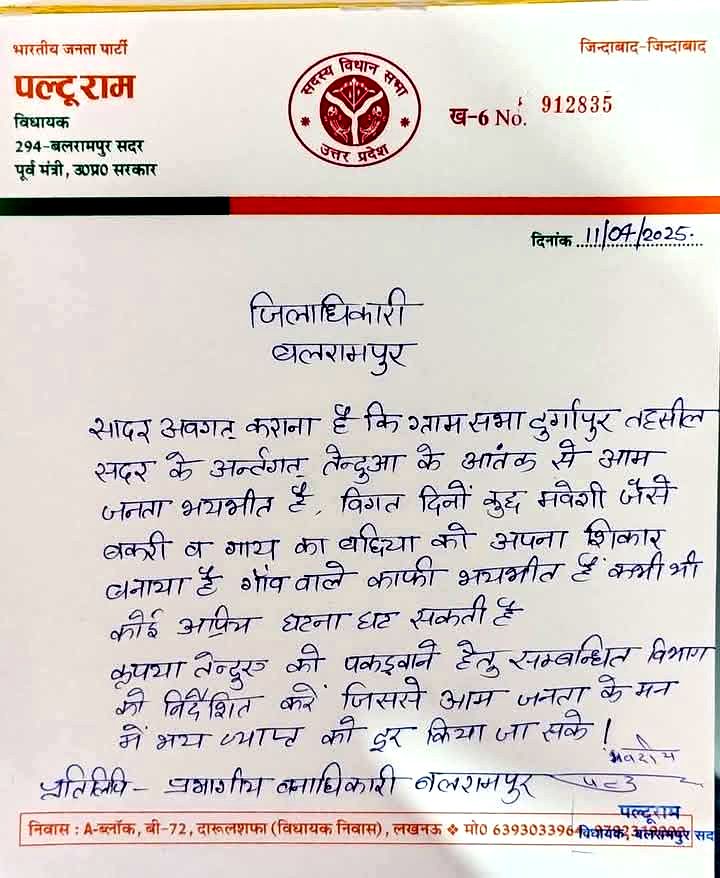 भारतीय जनता पार्टी
पल्टूराम
विधायक
294-बलरामपुर सदर
पूर्व मंत्री, उ0प्र0 सरकार
सदस्य विधान सभा
उत्तर प्रदेश
जिन्दाबाद-जिन्दाबाद
ख-6 No. 912835
दिनांक 11/04/2025.
जिलाधिकारी
बलरामपुर
सादर अवगत् कराना है कि ग्राम सभा दुर्गापुर तहसील
सदर के अर्न्तगत् तेन्दुआ के आतंक से आम
जनता भयभीत है, विगत दिनों कुछ मवेशी जैसे
बकरी व गाय का बछिया को अपना शिकार
बनाया है गाँव वाले काफी भयभीत हैं कभी भी
कोई अप्रिय घटना घट सकती है
कृपया तेन्दुए को पकड़वाने हेतु सम्बन्धित विभाग
को निर्देशित करें जिससे आम जनता के मन
में भय व्याप्त को दूर किया जा सके!
भवदीय
प्रतिलिपि - प्रभागीय वनाधिकारी बलरामपुर
पल्टूराम
विधायक, बलरामपुर सद
निवास : A-ब्लॉक, बी-72, दारूलशफा (विधायक निवास), लखनऊ ❖ मो0 639303396